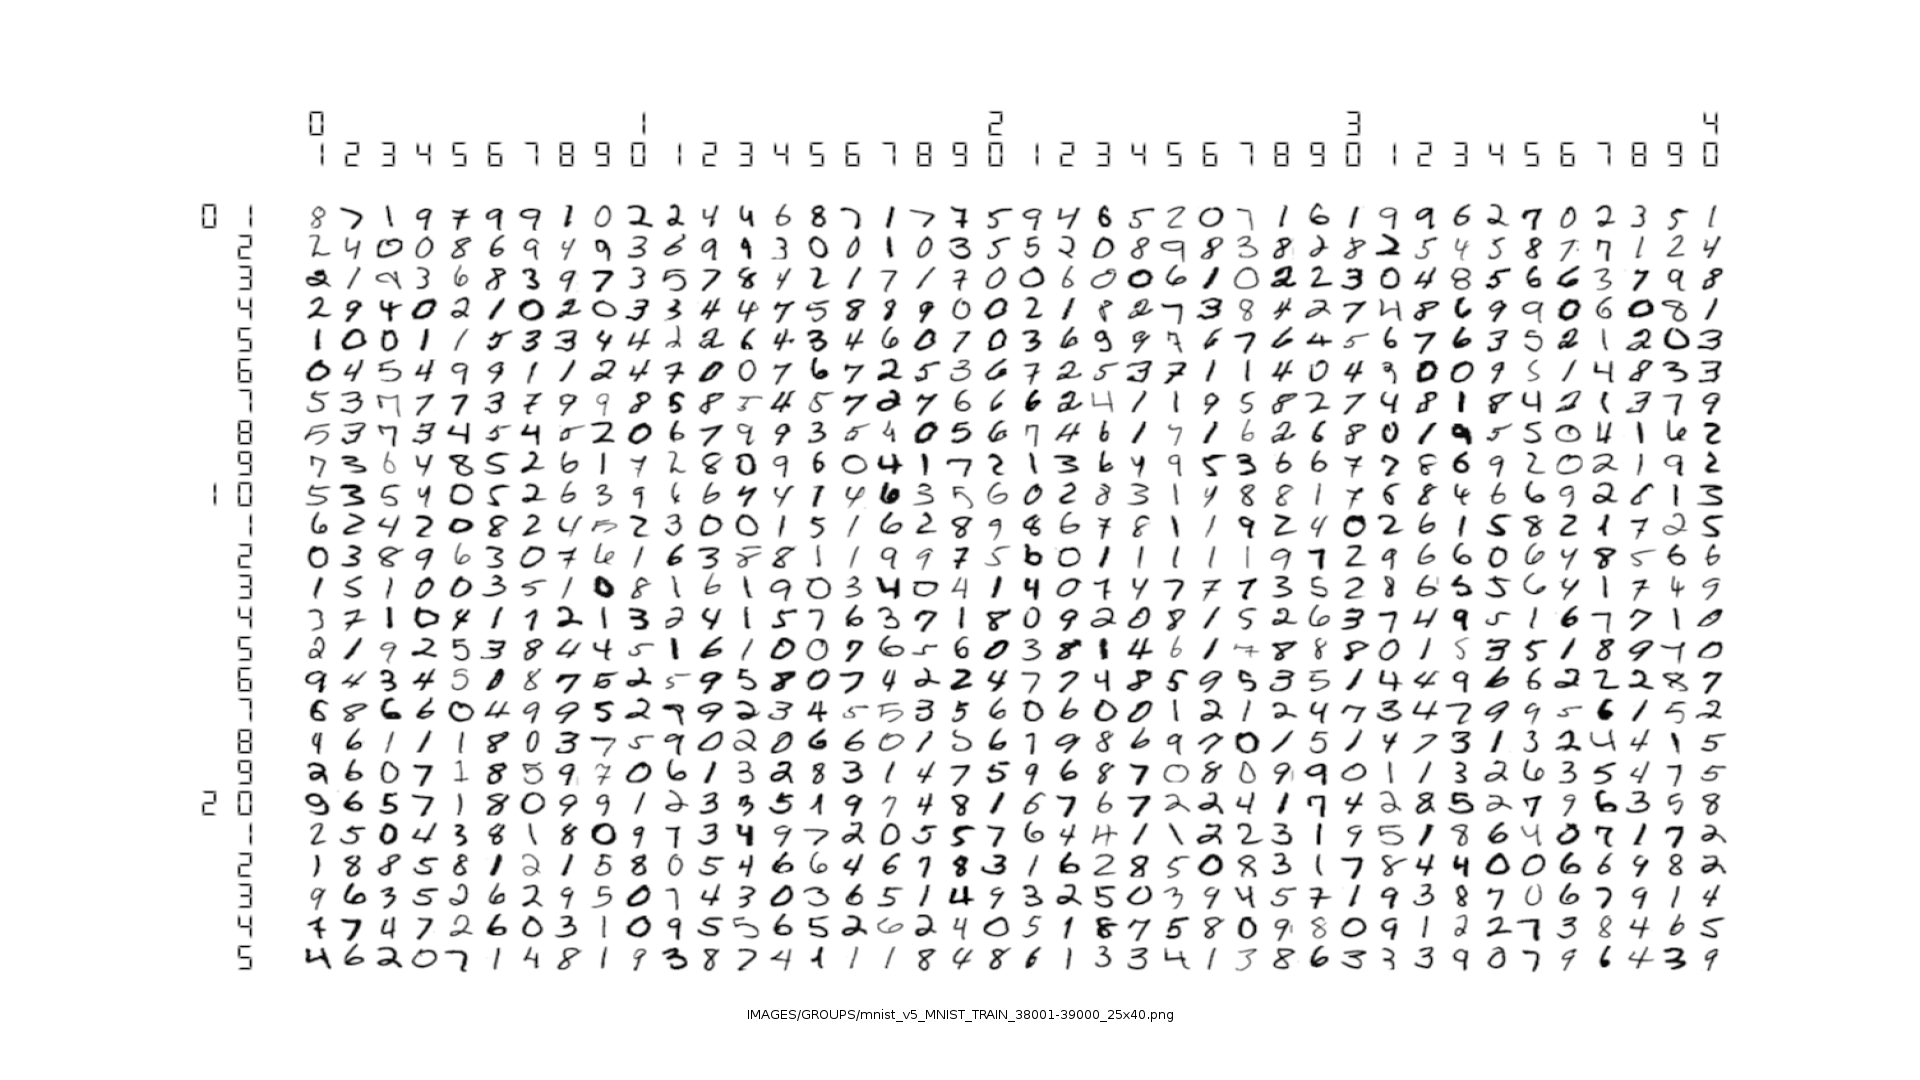 0 1 2 3 4
1 2 3 4 5 6 7 8 9 0 1 2 3 4 5 6 7 8 9 0 1 2 3 4 5 6 7 8 9 0 1 2 3 4 5 6 7 8 9 0
0 1 8 7 1 9 7 9 9 1 0 2 2 4 4 6 8 7 1 7 7 5 9 4 6 5 2 0 7 1 6 1 9 9 6 2 7 0 2 3 5 1
2 2 4 0 0 8 6 9 4 9 3 6 9 9 3 0 0 1 0 3 5 5 2 0 8 9 8 3 8 2 8 2 5 4 5 8 7 7 1 2 4
3 2 1 9 3 6 8 3 9 7 3 5 7 8 4 2 1 7 1 7 0 0 6 0 0 6 1 0 2 2 3 0 4 8 5 6 6 3 7 9 8
4 2 9 4 0 2 1 0 2 0 3 3 4 4 7 5 8 8 9 0 0 2 1 8 2 7 3 8 4 2 7 4 8 6 9 9 0 6 0 8 1
5 1 0 0 1 1 5 3 3 4 4 2 2 6 4 3 4 6 0 7 0 3 6 9 9 7 6 7 6 4 5 6 7 6 3 5 2 1 2 0 3
6 0 4 5 4 9 9 1 1 2 4 7 0 0 7 6 7 2 5 3 6 7 2 5 3 7 1 1 4 0 4 3 0 0 9 5 1 4 8 3 3
7 5 3 7 7 7 3 7 9 9 8 5 8 5 4 5 7 2 7 6 6 6 2 4 1 1 9 5 8 2 7 4 8 1 8 4 2 1 3 7 9
8 5 3 7 3 4 5 4 5 2 0 6 7 9 9 3 5 4 0 5 6 7 4 6 1 7 1 6 2 6 8 0 1 9 5 5 0 4 1 6 2
9 7 3 6 4 8 5 2 6 1 7 2 8 0 9 6 0 4 1 7 2 1 3 6 4 9 5 3 6 6 7 7 8 6 9 2 0 2 1 9 2
1 0 5 3 5 4 0 5 2 6 3 9 6 6 4 4 1 4 6 3 5 6 0 2 8 3 1 4 8 8 1 7 6 8 4 6 6 9 2 8 1 3
1 6 2 4 2 0 8 2 4 5 2 3 0 0 1 5 1 6 2 8 9 8 6 7 8 1 1 9 2 4 0 2 6 1 5 8 2 1 7 2 5
2 0 3 8 9 6 3 0 7 6 1 6 3 8 8 1 1 9 9 7 5 6 0 1 1 1 1 1 9 7 2 9 6 6 0 6 4 8 5 6 6
3 1 5 1 0 0 3 5 1 0 8 1 6 1 9 0 3 4 0 4 1 4 0 7 4 7 7 7 3 5 2 8 6 5 5 6 4 1 7 4 9
4 3 7 1 0 4 1 7 2 1 3 2 4 1 5 7 6 3 7 1 8 0 9 2 0 8 1 5 2 6 3 7 4 9 5 1 6 7 7 1 0
5 2 1 9 2 5 3 8 4 4 5 1 6 1 0 0 7 6 5 6 0 3 8 1 4 6 1 7 8 8 8 0 1 5 3 5 1 8 9 4 0
6 9 4 3 4 5 0 8 7 5 2 5 9 5 8 0 7 4 2 2 4 7 7 4 8 5 9 5 3 5 1 4 4 9 6 6 2 2 2 8 7
7 6 8 6 6 0 4 9 9 5 2 7 9 2 3 4 5 5 3 5 6 0 6 0 0 1 2 1 2 4 7 3 4 7 9 9 5 6 1 5 2
8 4 6 1 1 1 8 0 3 7 5 9 0 2 0 6 6 0 1 5 6 7 9 8 6 9 7 0 1 5 1 4 7 3 1 3 2 4 4 1 5
9 2 6 0 7 1 8 5 9 7 0 6 1 3 2 8 3 1 4 7 5 9 6 8 7 0 8 0 9 9 0 1 1 3 2 6 3 5 4 7 5
2 0 9 6 5 7 1 8 0 9 9 1 2 3 3 5 1 9 7 4 8 1 6 7 6 7 2 2 4 1 7 4 2 8 5 2 7 9 6 3 5 8
1 2 5 0 4 3 8 1 8 0 9 7 3 4 9 7 2 0 5 5 7 6 4 4 1 1 2 2 3 1 9 5 1 8 6 4 0 7 1 7 2
2 1 8 8 5 8 1 2 1 5 8 0 5 4 6 6 4 6 7 8 3 1 6 2 8 5 0 8 3 1 7 8 4 4 0 0 6 6 9 8 2
3 9 6 3 5 2 6 2 9 5 0 7 4 3 0 3 6 5 1 4 9 3 2 5 0 3 9 4 5 7 1 9 3 8 7 0 6 7 9 1 4
4 7 7 4 7 2 6 0 3 1 0 9 5 5 6 5 2 6 2 4 0 5 1 8 7 5 8 0 9 8 0 9 1 2 2 7 3 8 4 6 5
5 4 6 2 0 7 1 4 8 1 9 3 8 7 4 1 1 1 8 4 8 6 1 3 3 4 1 3 8 6 3 3 3 9 0 7 9 6 4 3 9
IMAGES/GROUPS/mnist_v5_MNIST_TRAIN_38001-39000_25x40.png